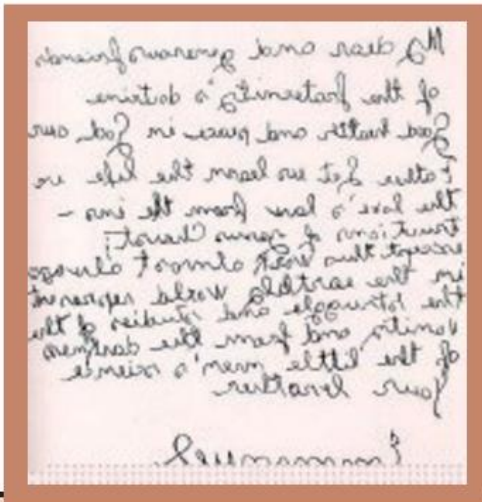 My dear and generous friends
of the fraternity's dotrine
Good health and peace in God our
Father Let us learn the life in
the love's law from the ins-
tructions of Jesus Christ;
except this that almost always
in the earthly world represent
the struggle and studies of the
vanity and from the darkness
of the little men's science
Your brother
Emmanuel